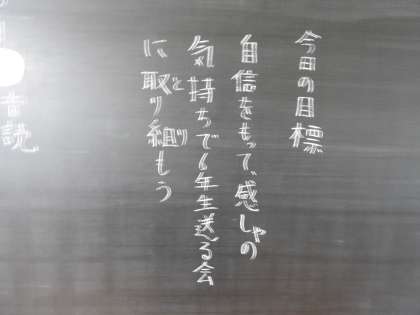 今日の目標
自信をもって、感しゃの
気持ちで6年生送る会
に取り組もう
音読